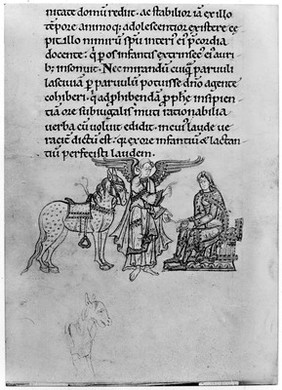 nitate domū redııt. ac stabilior iā ex illo
tēpore animoq; adolescentior existere cę
pit. illo nimirū spū interi ei p̄cordia
docente. q̇ pos infantis extrinsec' ei auri
b; insonuit. Nec mirandū cuiq̄ parvuli
lasciviā p parvulū potuisse drīo agente
cohiberi. q̇ adphibendā pphę insipien
tiā ore subiugalis muti rationabilia
verba cū voluit edidit. In cui laude ve
racit dictū est. q̇ ex ore infantiū & lactan
tiū perfecisti laudem.